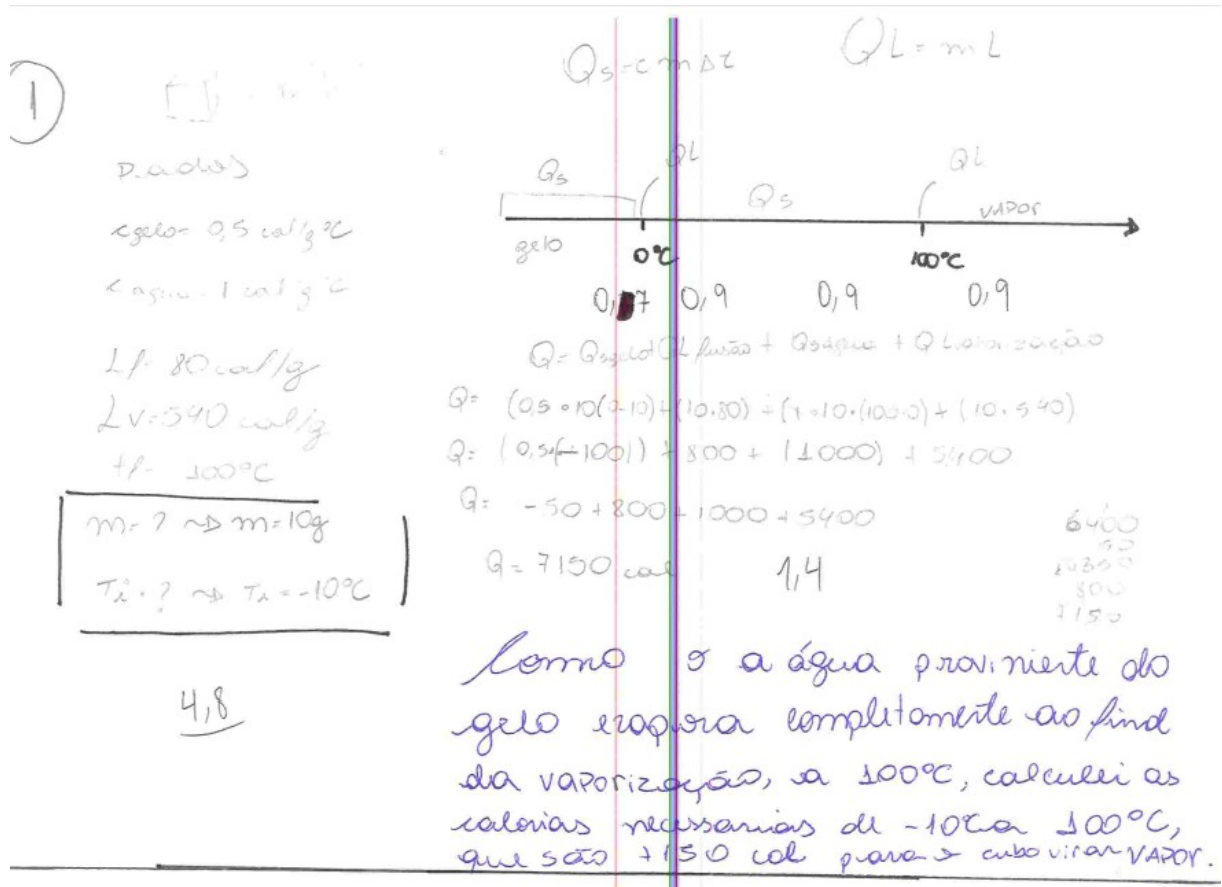 1
Qs=cmΔt
QL=mL
Dados
cgelo= 0,5 cal/g°C
c água= 1 cal/g°C
Lf= 80 cal/g
Lv=540 cal/g
tf= 100°C
m=? ~> m=10g
Ti=? ~> Ti=-10°C
4,8
Qs QL Qs QL
gelo 0°C 100°C VAPOR
0,7 0,9 0,9 0,9
Q= Qsgelo+QL fusão + Qságua + QL vaporização
Q= (0,5.10(0-10)+(10.80)+(1.10.(100-0)+(10.540)
Q= (0,5(-100))+800+(1000)+5400
Q= -50+800+1000+5400
Q=7150 cal
1,4
6400
50
800
7150
Como a água proviniente do
gelo evapora completamente ao final
da vaporização, a 100°C, calculei as
calorias necessarias de -10°C a 100°C,
que são 7150 cal para o cubo virar VAPOR.